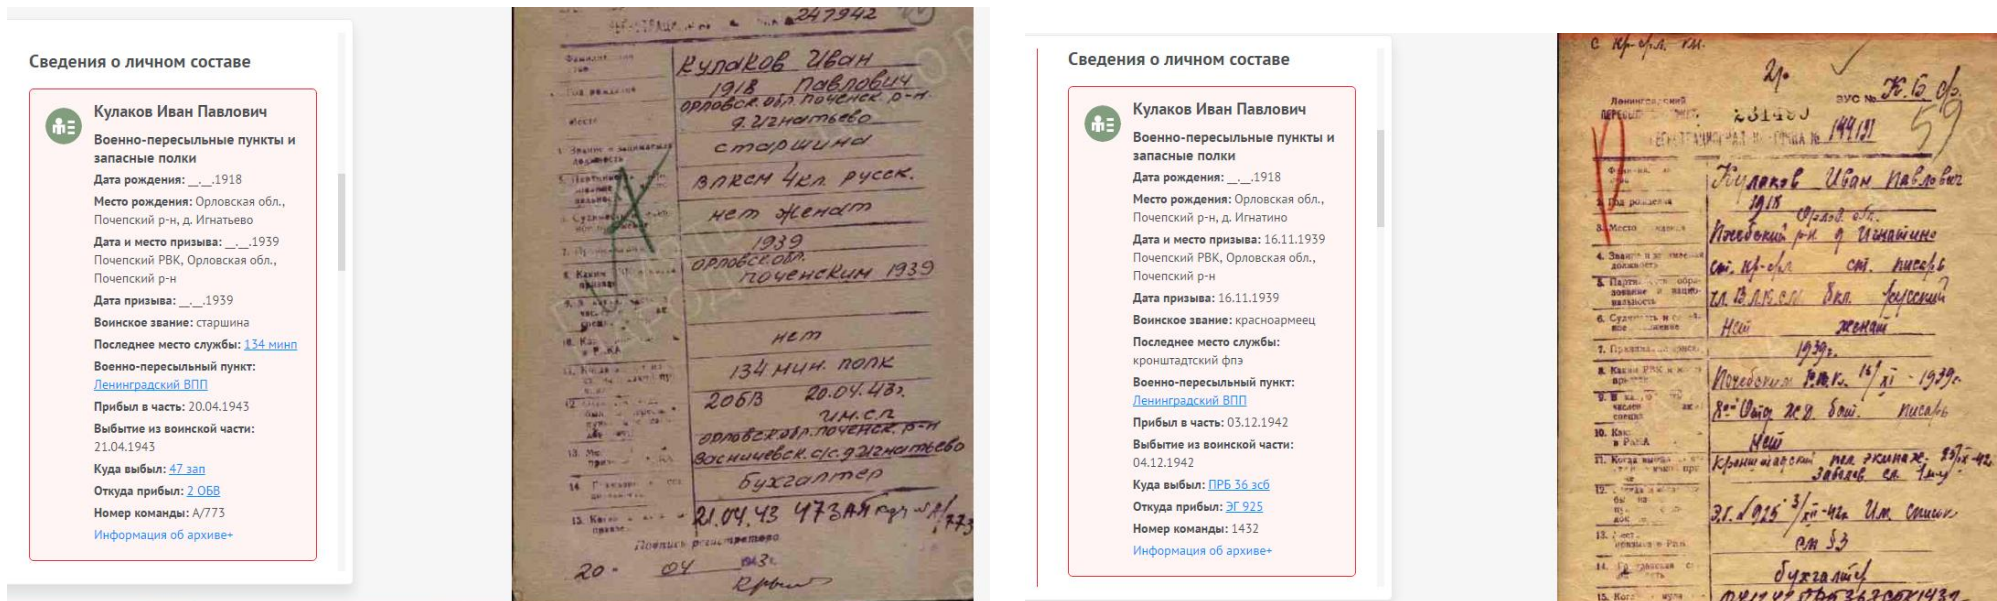 Сведения о личном составе
Кулаков Иван Павлович
Военно-пересыльные пункты и
запасные полки
Дата рождения: __.__.1918
Место рождения: Орловская обл.,
Почепский р-н, д. Игнатьево
Дата и место призыва: __.__.1939
Почепский РВК, Орловская обл.,
Почепский р-н
Дата призыва: __.__.1939
Воинское звание: старшина
Последнее место службы: 134 минп
Военно-пересыльный пункт:
Ленинградский ВПП
Прибыл в часть: 20.04.1943
Выбытие из воинской части:
21.04.1943
Куда выбыл: 47 зап
Откуда прибыл: 2 ОБВ
Номер команды: А/773
Информация об архиве+
247942
Кулаков Иван
1918 Павлович
орловск. обл. поченск. р-н.
д. Игнатьево
старшина
ВЛКСМ 4кл. русск.
нет женат
1939
орловск. обл.
поченским 1939
нет
134 мин. полк
20БВ 20.04.43г.
им. сп
орловск. обл. поченск. р-н
с/с. д. Игнатьево
бухгалтер
21.04.43
Подпись регистратора
20 - 04
Сведения о личном составе
Кулаков Иван Павлович
Военно-пересыльные пункты и
запасные полки
Дата рождения: __.__.1918
Место рождения: Орловская обл.,
Почепский р-н, д. Игнатино
Дата и место призыва: 16.11.1939
Почепский РВК, Орловская обл.,
Почепский р-н
Дата призыва: 16.11.1939
Воинское звание: красноармеец
Последнее место службы:
кронштадтский фпэ
Военно-пересыльный пункт:
Ленинградский ВПП
Прибыл в часть: 03.12.1942
Выбытие из воинской части:
04.12.1942
Куда выбыл: ПРБ 36 зсб
Откуда прибыл: ЭГ 925
Номер команды: 1432
Информация об архиве+
с кр-фл. кн.
ВУС №
59
Ленинградский
231490
№ 144131
Кулаков Иван Павлович
2. Год рождения 1918
Орлов. обл.
3. Место р-н д Игнатино
4. Звание
должность ст. кр-фл ст. писарь
чл. В.Л.К.С.М. 8кл. русский
Нет женат
1939г.
Р.В.К. 16/XI - 1939г.
жд. бат. писарь
Нет
экипаж
Э.Г. №925 3/XII-42г Им. список
см §3
бухгалтер